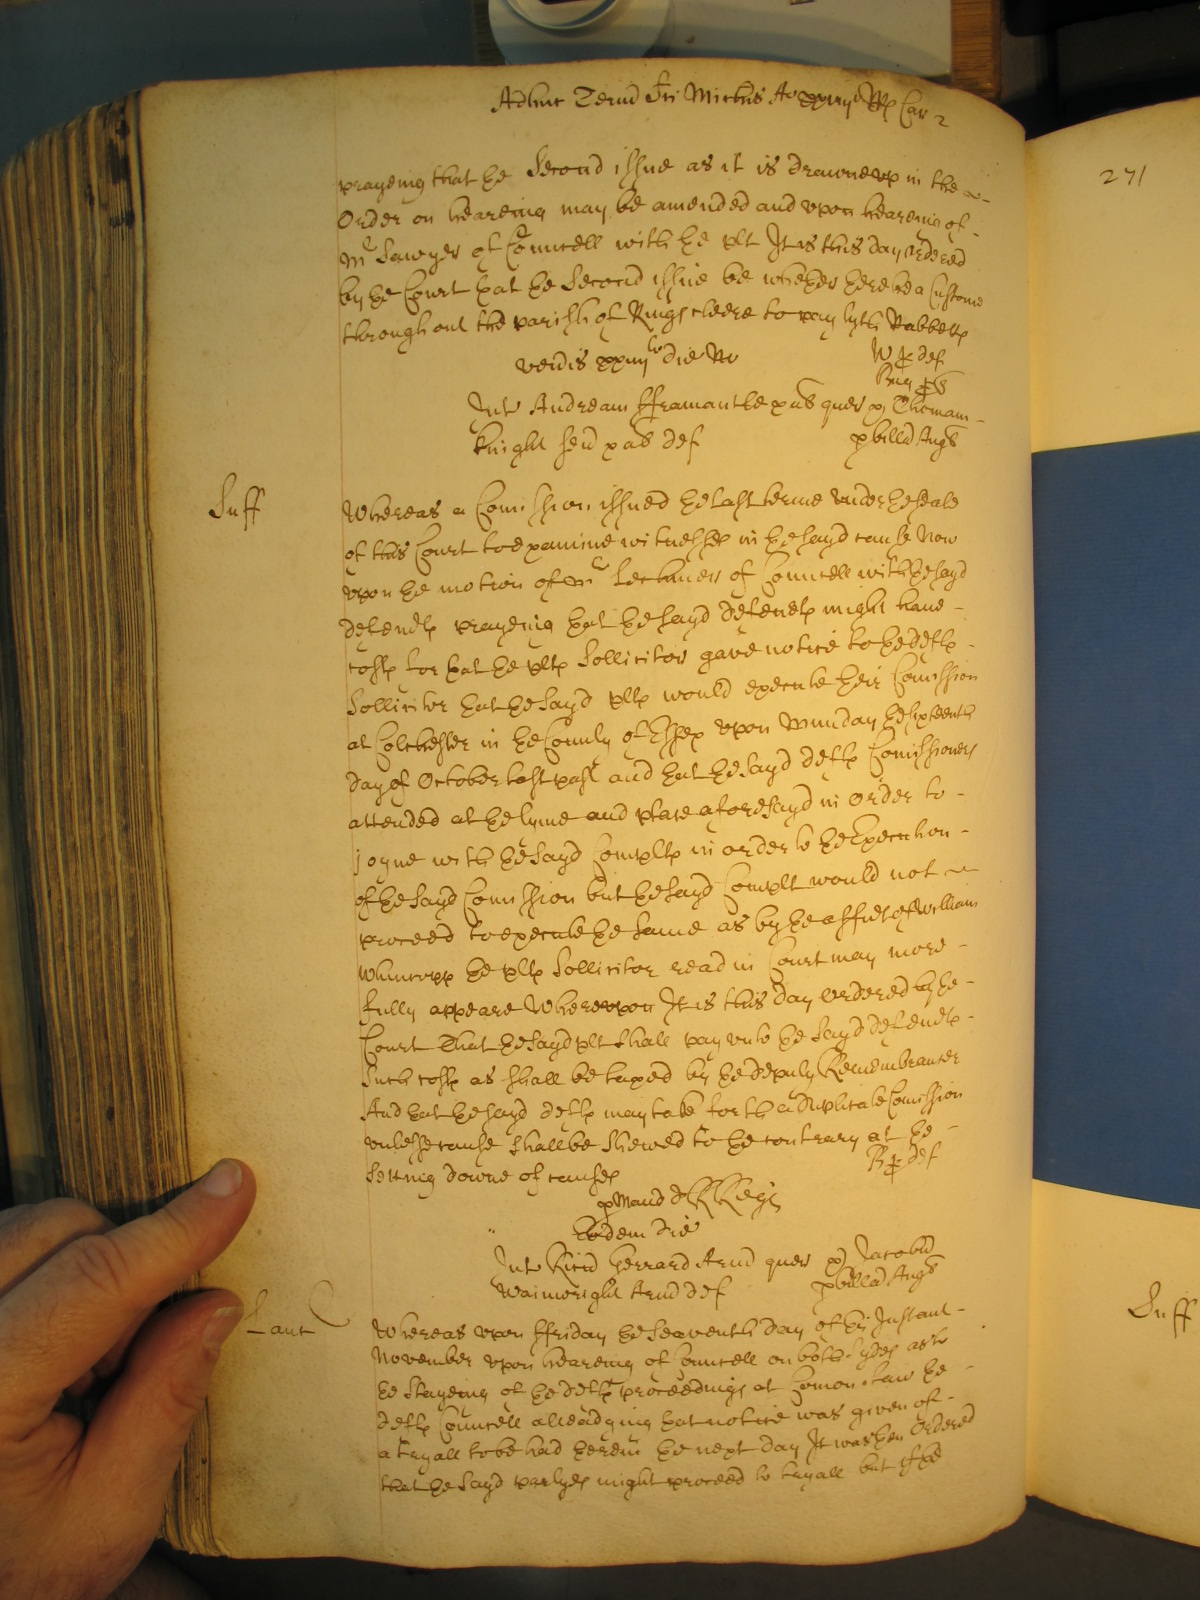 Adhuc Termi Sci Michis Ao xxviij R Rs Car 2
271
prayeing that ye Second issue as it is drawne vp in the
Order on heareing may be amended and vpon heareing of
Mr Sawyer of Councell with ye plt It is this day ordered
by ye Court yat ye Second issue be whether there be a Custome
through out the parish of Kingscleere to pay tyth Rabbetts
W p def
Veneris xxiiijto die No
Inter Andream ffromanteel quer & Thomam
Knight sen def
p billa Angl
Suff
Whereas a Comission issued ye last terme vnder ye seale
of this Court to examine witnesses in ye sayd cause Now
vpon ye motion of Mr Lechmere of Councell with ye sayd
defendts prayeing yat ye sayd defendts might have
costs for yat ye plts Sollicitor gave notice to ye defts
Sollicitor yat ye sayd plts would execute their Comission
at Colchester in ye County of Essex vpon Munday ye sixteenth
day of October last past and yat ye sayd defts Comissioners
attended at ye tyme and place aforesayd in order to
joyne with ye sayd Complts in order to ye Execution
of ye sayd Comission but ye sayd Complt would not
proceed to execute ye same as by ye affidt of William
ye plts Sollicitor read in Court may more
fully appeare Wherevpon It is this day Ordered by ye
Court That ye sayd plt shall pay vnto ye sayd defendts
Such costs as shall be taxed by ye deputy Remembrancer
And yat ye sayd defts may take forth a duplicate Comission
vnlesse cause shall be shewed to ye contrary at ye
setting downe of causes
B p def
Eodem die
Inter Ricd Gerrard Armd quer & Jacobu
Wainwright Armd def
p billa Angl
Lanc
Whereas vpon ffriday ye Seaventh day of this Instant
November vpon heareing of Councell on both sydes as to
ye stayeing of ye defts proceedings at Comon Law ye
defts Councell alleadging yat notice was given of
a tryall to be had therein ye next day It was then Ordered
that ye sayd partyes might proceed to tryall but if ye
Suff